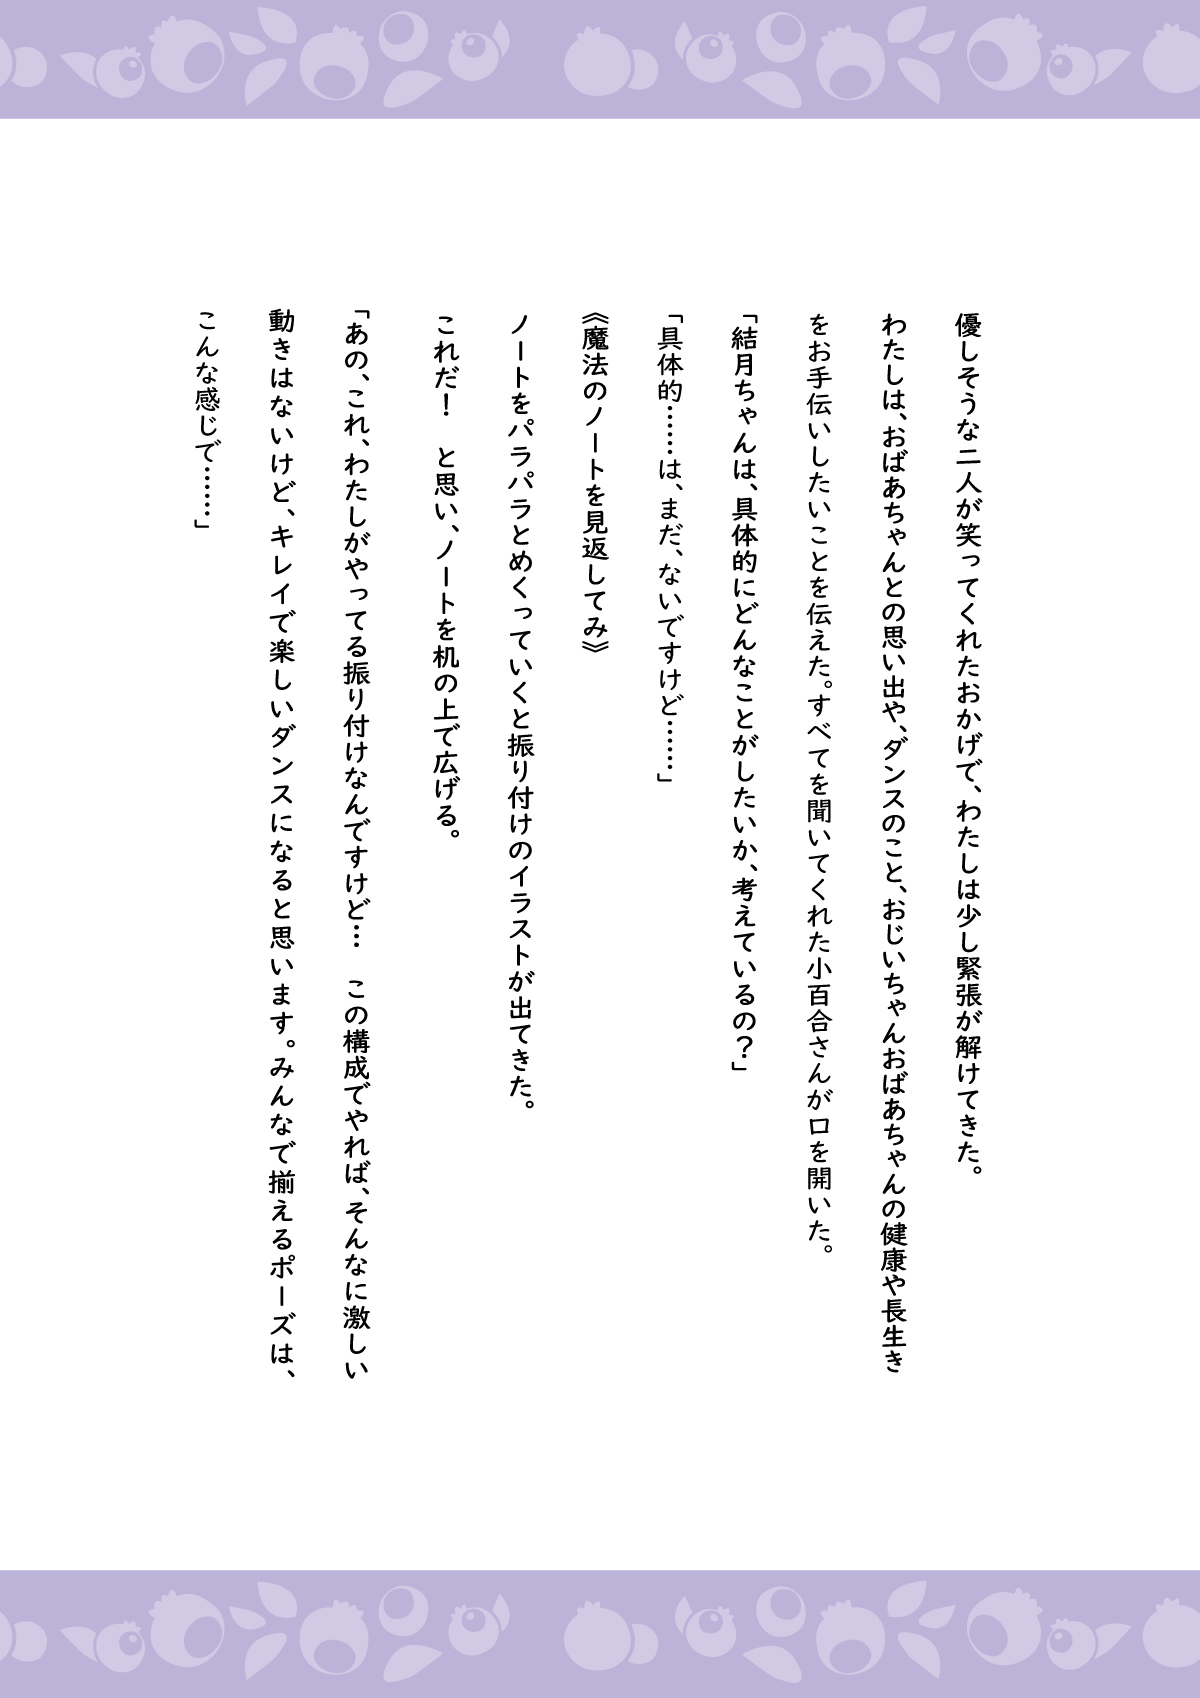 優しそうな二人が笑ってくれたおかげで、わたしは少し緊張が解けてきた。
わたしは、おばあちゃんとの思い出や、ダンスのこと、おじいちゃんおばあちゃんの健康や長生き
をお手伝いしたいことを伝えた。すべてを聞いてくれた小百合さんが口を開いた。
「結月ちゃんは、具体的にどんなことがしたいか、考えているの？」
「具体的……は、まだ、ないですけど……」
《魔法のノートを見返してみ》
ノートをパラパラとめくっていくと振り付けのイラストが出てきた。
これだ！　と思い、ノートを机の上で広げる。
「あの、これ、わたしがやってる振り付けなんですけど…　この構成でやれば、そんなに激しい
動きはないけど、キレイで楽しいダンスになると思います。みんなで揃えるポーズは、
こんな感じで……」